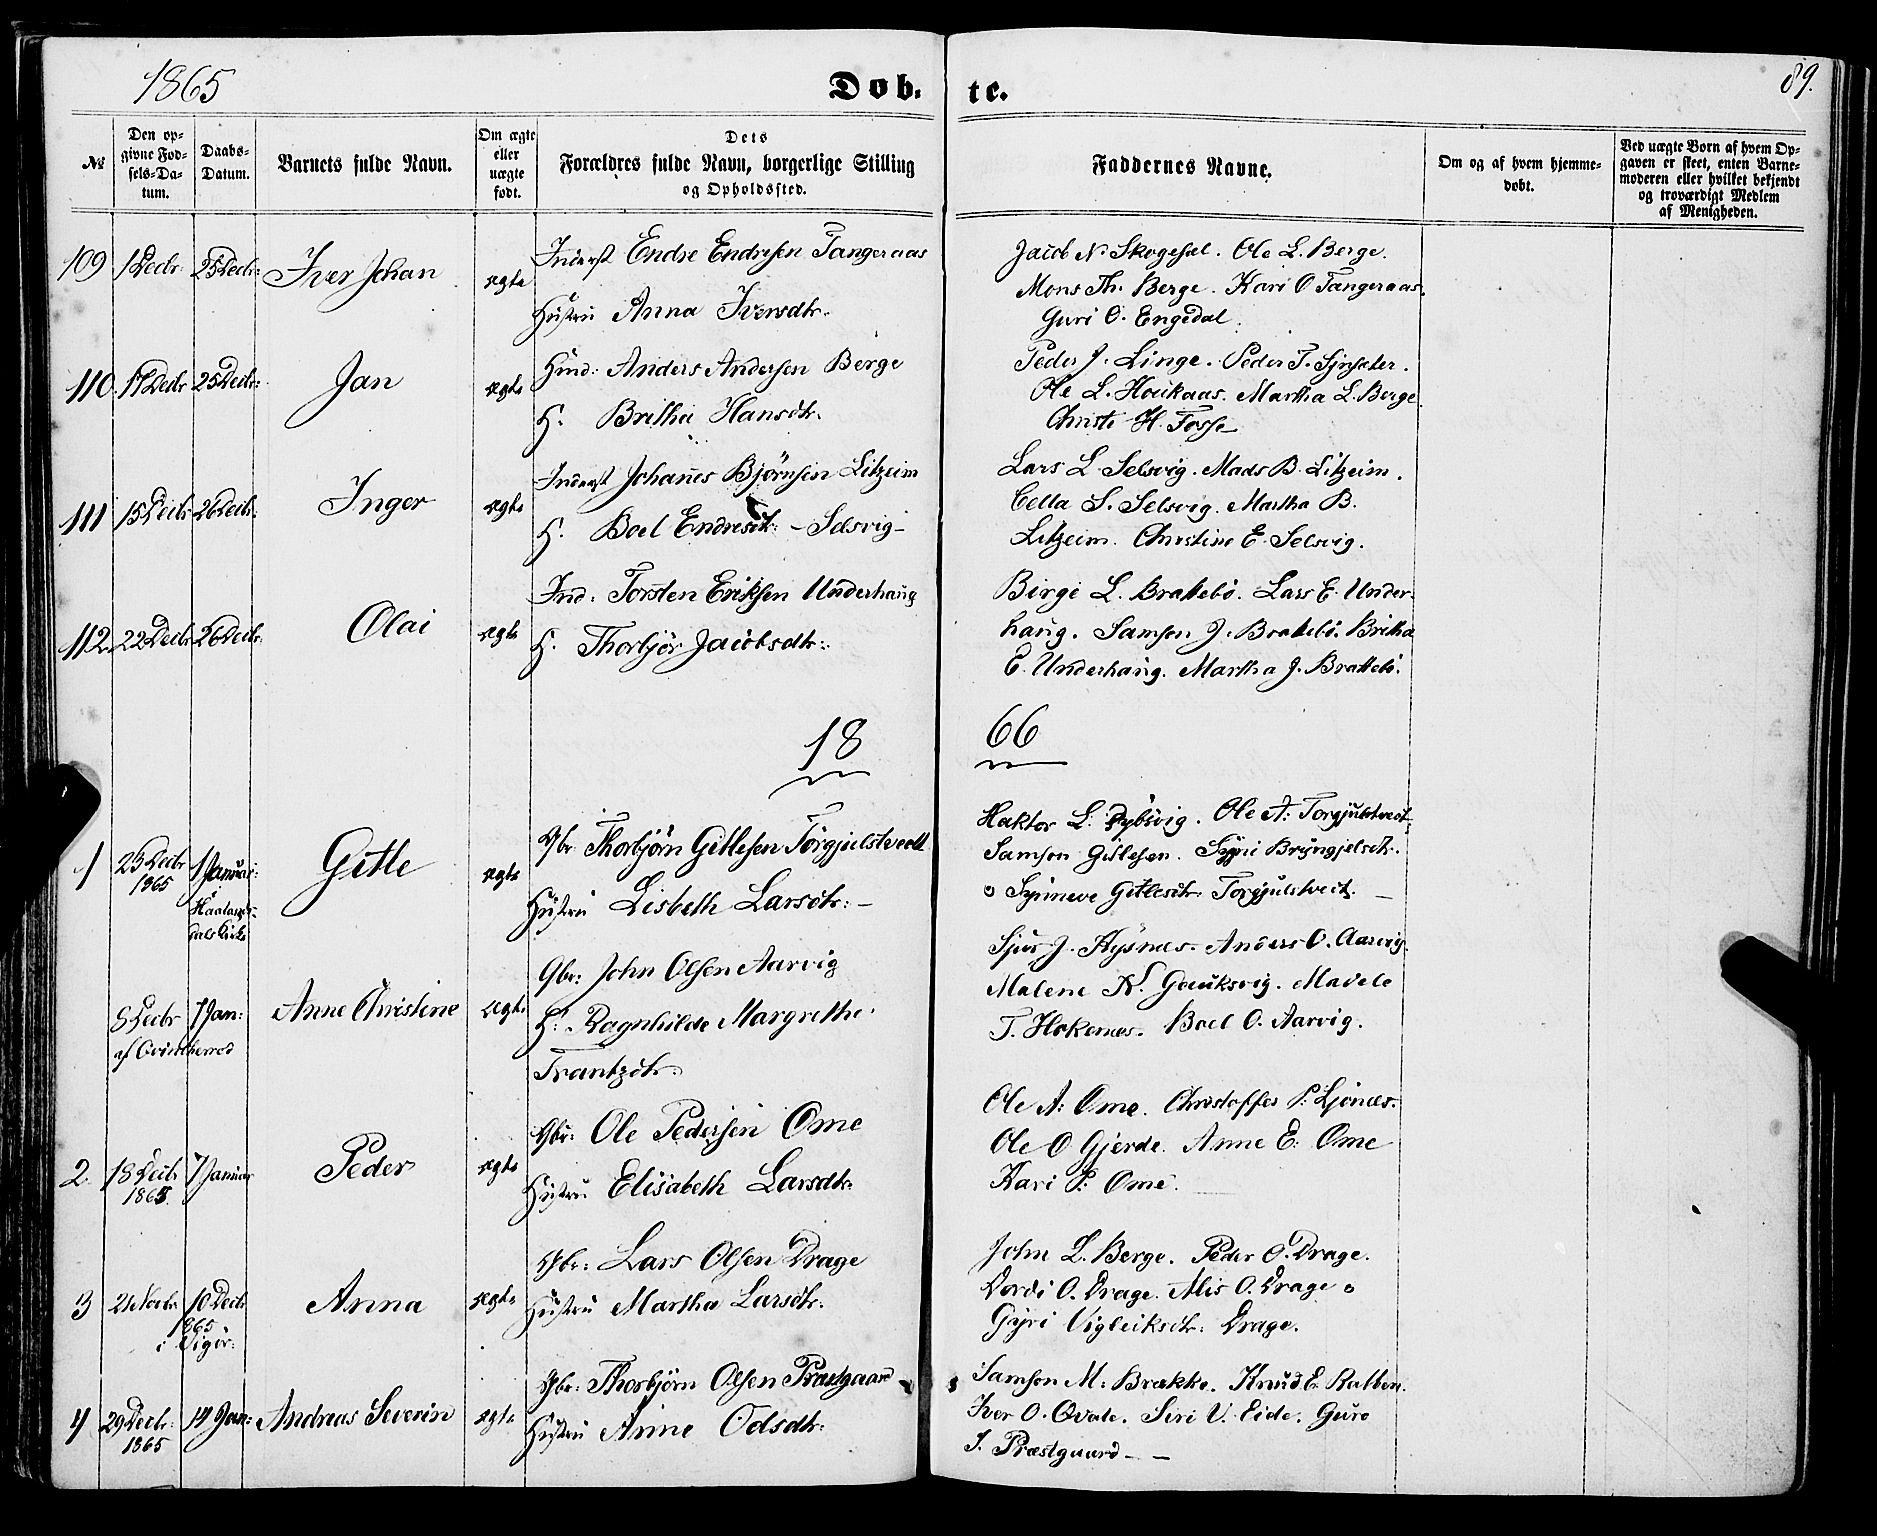 1865
Døb-
te.
89.
№
Den op-
givne Fød-
sels-Da-
tum.
Daabs-
Datum.
Barnets fulde Navn.
Om ægte
eller
uægte
født.
Dets
Forældres fulde Navn, borgerlige Stilling
og Opholdssted.
Faddernes Navne.
Om og af hvem hjemme-
døbt.
Ved uægte Børn af hvem Op-
gaven er skeet, enten Barne-
moderen eller hvilket bekjendt
og troværdigt Medlem
af Menigheden.
109 1 Decbr 25 Decbr: Iver Johan ægte
Inderst Endre Endresen Tangeraas
Hustru Anna Iversdtr.
Jacob N. Skogesal. Ole L. Berge.
Mons Th. Berge. Kari O Tangeraas.
Guri O. Engedal.
110. 17 Decbr 25 Decbr: Jan ægte
Huusd: Anders Andersen Berge
H. Britha Hansdtr.
Peder J. Linge. Peder T.
Ole L. Houkaas. Martha L. Berge.
Christi H. Fosse
111 15 Decbr 26 Decbr. Inger ægte
Inderst Johanes Bjørnsen Litzeim
H. Boel Endresdtr: - Selsvig -
Lars L. Selsvig. Mads B. Litzeim.
Cella S. Selsvig. Martha B.
Litzeim. Christine E. Selsvig.
112. 22 Decbr 26 Decbr. Olai ægte
Ind: Torsten Eriksen Underhaug
H. Thorbjør Jacobsdtr:
Birge L. Brattebø. Lars E. Under-
haug. Samson J. Brattebø. Britha
E. Underhaug. Martha J. Brattebø.
18 66
1 25 Decbr 1 Januar: Gitle ægte
1865
Haalands-
dals Kirke
Gbr. Thorbjørn Gitlesen Torgjulstvedt
Hustru Lisbeth Larsdtr: -
Haktor L. Dybsvig. Ole A: Torgjulstvedt,
Samson Gitlesen. Bryngjelsdtr.
o Synneve Gitlesdtr. Torgjulstveit. -
8 Decbr 7 Jan: Anne Christine ægte
af Qvindherred
Gbr: John Olsen Aarvig
H: Ragnhilde Margrethe
Frantzdtr:
Sjur J. Kysnes. Anders O. Aarvig.
Malene K. Gauksvig. Madele
T. Hokenæs. Boel O. Aarvig.
2. 18 Decbr 7 Januar Peder ægte
1865.
Gbr: Ole Pedersen Ome
Hustru Elisabeth Larsdtr.
Ole A: Ome. Christoffer P:
Ole O Gjerde. Anne E: Ome
Kari P: Ome.
3 21 Novbr 10 Decbr Anna ægte
1865
i Vigør:
Gbr: Lars Olsen Drage
Hustru Martha Larsdtr:
John L. Berge. Peder O. Drage.
Dordi O. Drage. Alis O. Drage o
Gyri Vigleiksdtr: Drage.
4 29 Decbr: 14 Jan: Andreas Severin ægte
1865
Gbr: Thorbjørn Olsen Præstgaard
Hustru Anne Odsdtr.
Samson M: Brække. Knud E.
Iver O. Qvale. Siri V. Eide. Guro
J. Præstgaard - -